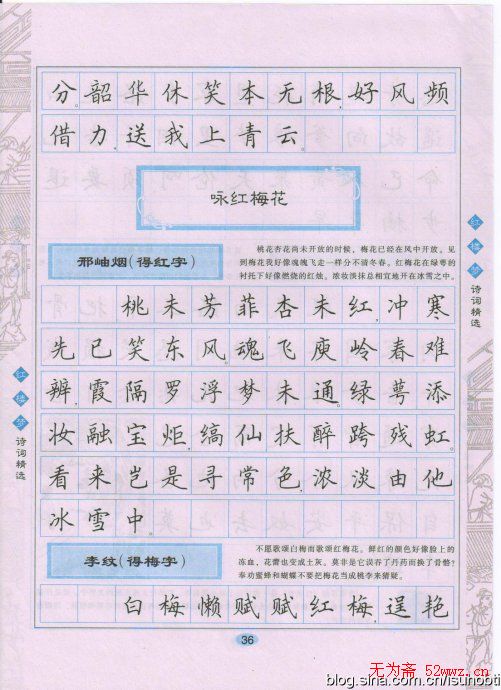 分。韶华休笑本无根,好风频
借力,送我上青云。
咏红梅花
邢岫烟(得红字)
桃花杏花尚未开放的时候,梅花已经在风中开放。见
到梅花我好像魂魄飞走一样分不清冬春。红梅花在绿萼的
衬托下好像燃烧的红烛。浓妆淡抹总相宜地开在冰雪之中。
桃未芳菲杏未红,冲寒
先已笑东风。魂飞庾岭春难
辨,霞隔罗浮梦未通。绿萼添
妆融宝炬,缟仙扶醉跨残虹。
看来岂是寻常色,浓淡由他
冰雪中。
李纹(得梅字)
不愿歌颂白梅而歌颂红梅花。鲜红的颜色好像脸上的
冻血,花蕾也变成土灰。莫非是它误吞了丹药而换了骨骼?
奉劝蜜蜂和蝴蝶不要把梅花当成桃李来猜疑。
白梅懒赋赋红梅,逞艳
36
红楼梦诗词精选
红楼梦诗词精选
无为斋 52wwz.cn
blog.sina.com.cn/lsunobti